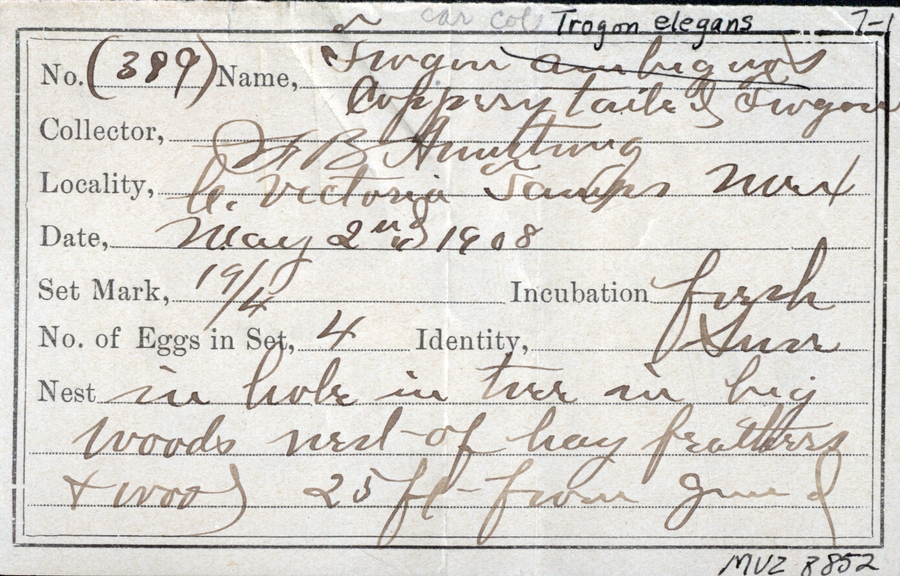 car col Trogon elegans 7-1
No. (389) Name, Trogon ambiguos
Copperytailed Trogon
Collector, F B Armstrong
Locality, C. Victoria Tamps Mex
Date, May 2nd 1908
Set Mark, 19/4 Incubation fresh
No. of Eggs in Set, 4 Identity, Sure
Nest in hole in tree in big
woods nest of hay feathers
+ wood 25 ft from ground
MVZ 8852